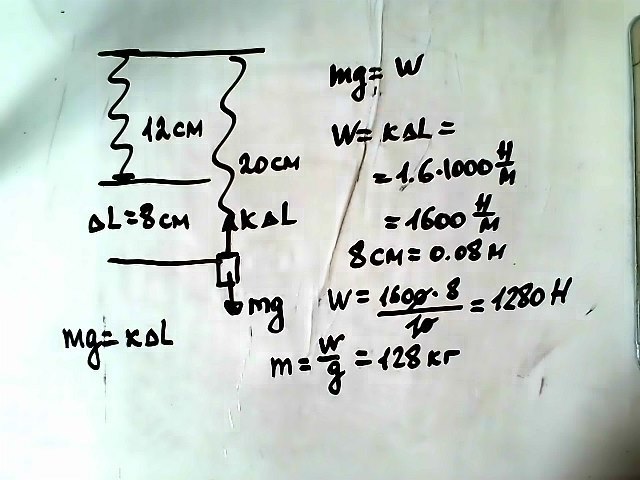 12см
20см
ΔL=8см
кΔL
mg
mg=кΔL
mg=W
W=кΔL=
=1.6·1000 Н/м
=1600 Н/м
8см=0.08м
W=1600·8/10=1280Н
m=W/g=128кг